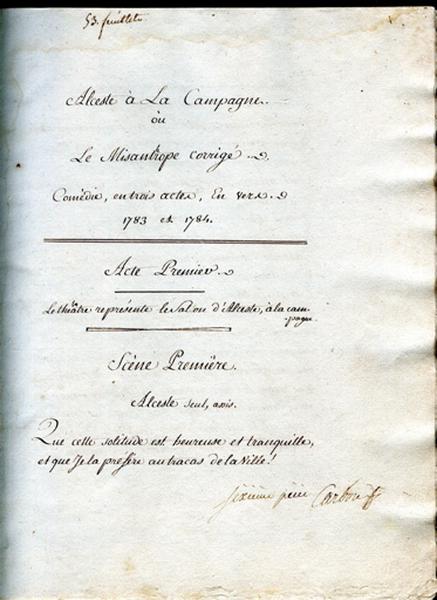 53. feuillets
Alceste à La Campagne.
où
Le Misantrope corrigé.
Comédie, en trois actes, En vers.
1783 et 1784.
Acte Premier.
Le théâtre représente le Salon d'Alceste, à la cam-
pagne.
Scène Première.
Alceste seul, assis.
Que cette solitude est heureuse et tranquille,
et que Je la préfère au tracas de la Ville!
sixième pièce Carbon